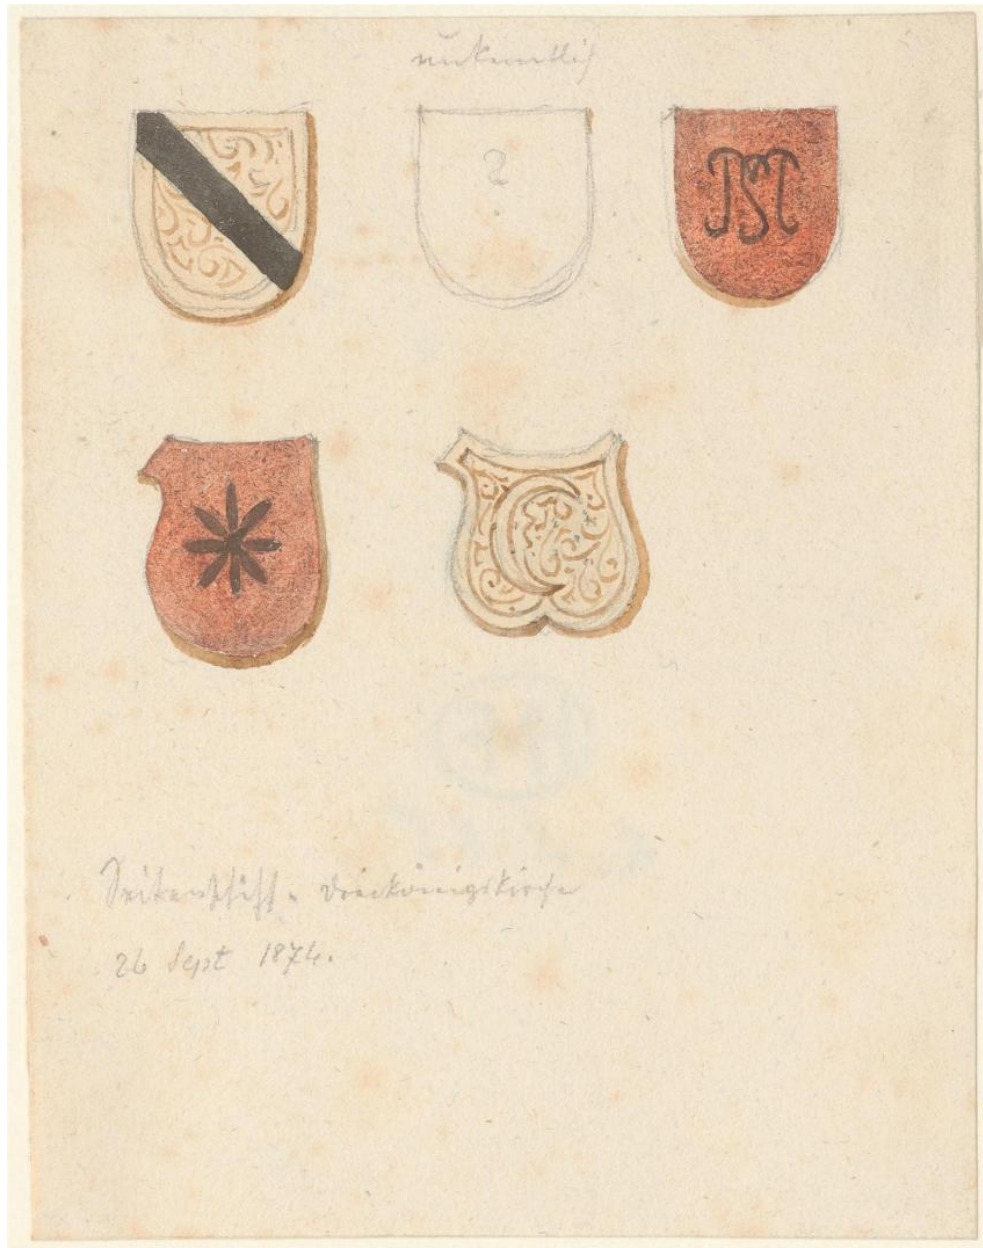 unkentlich
?
Seitenschiff. Dreikönigskirche
26 Sept 1874.